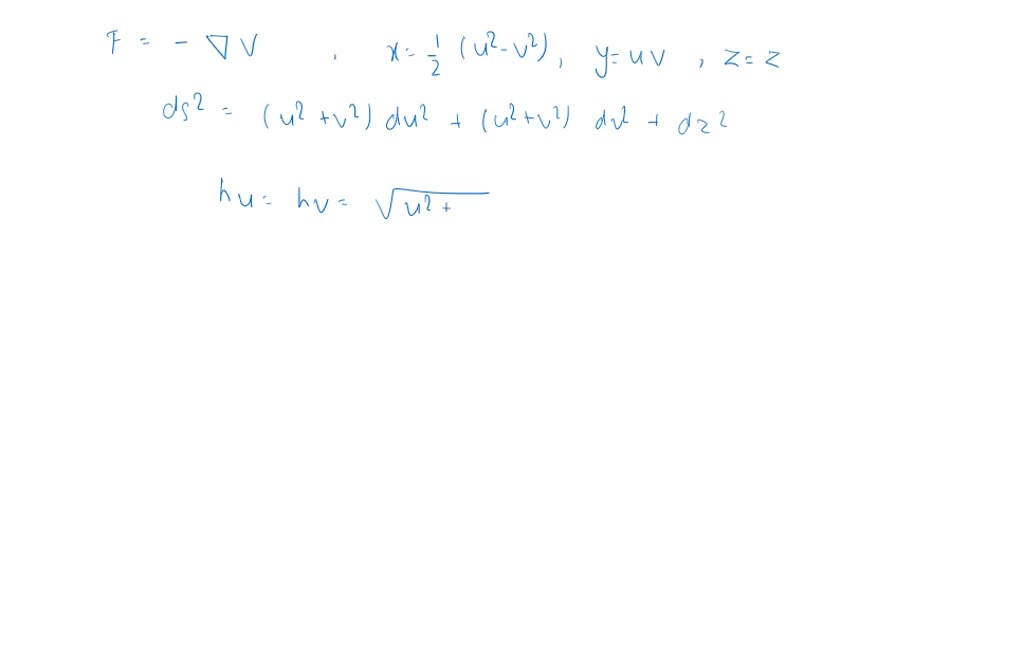 F = - ∇V , x = 1/2 (u² - v²), y = uv , z = z
ds² = (u² + v²) du² + (u² + v²) dv² + dz²
hu = hv = √(u² +